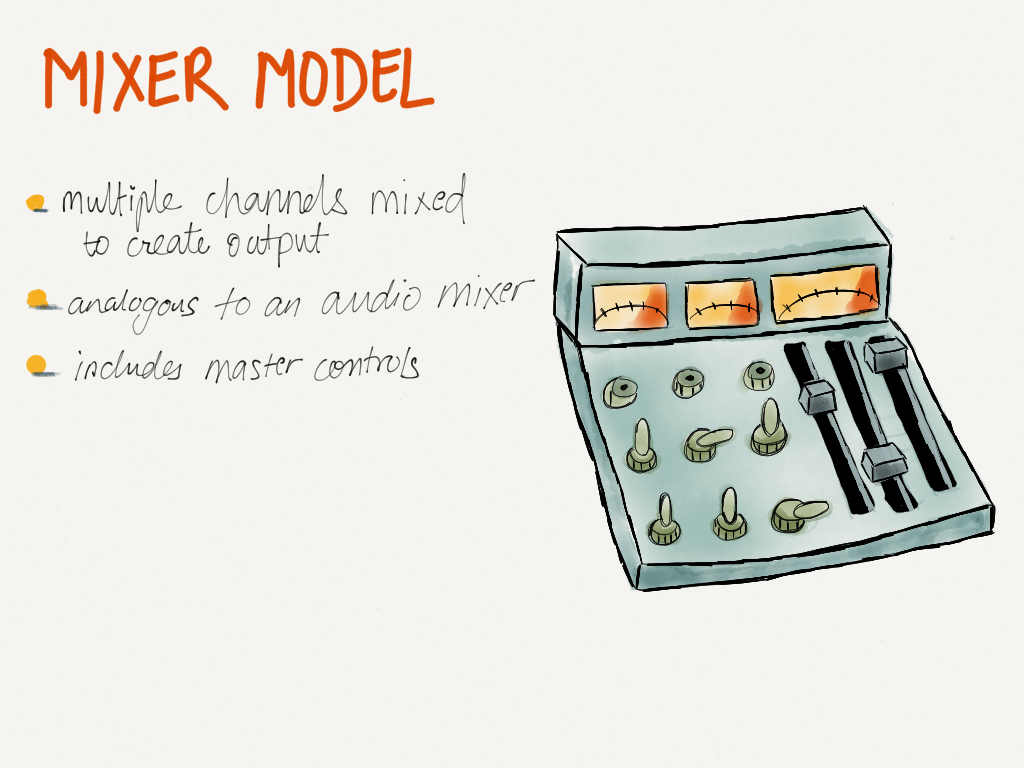 MIXER MODEL
multiple channels mixed
to create output
analogous to an audio mixer
includes master controls